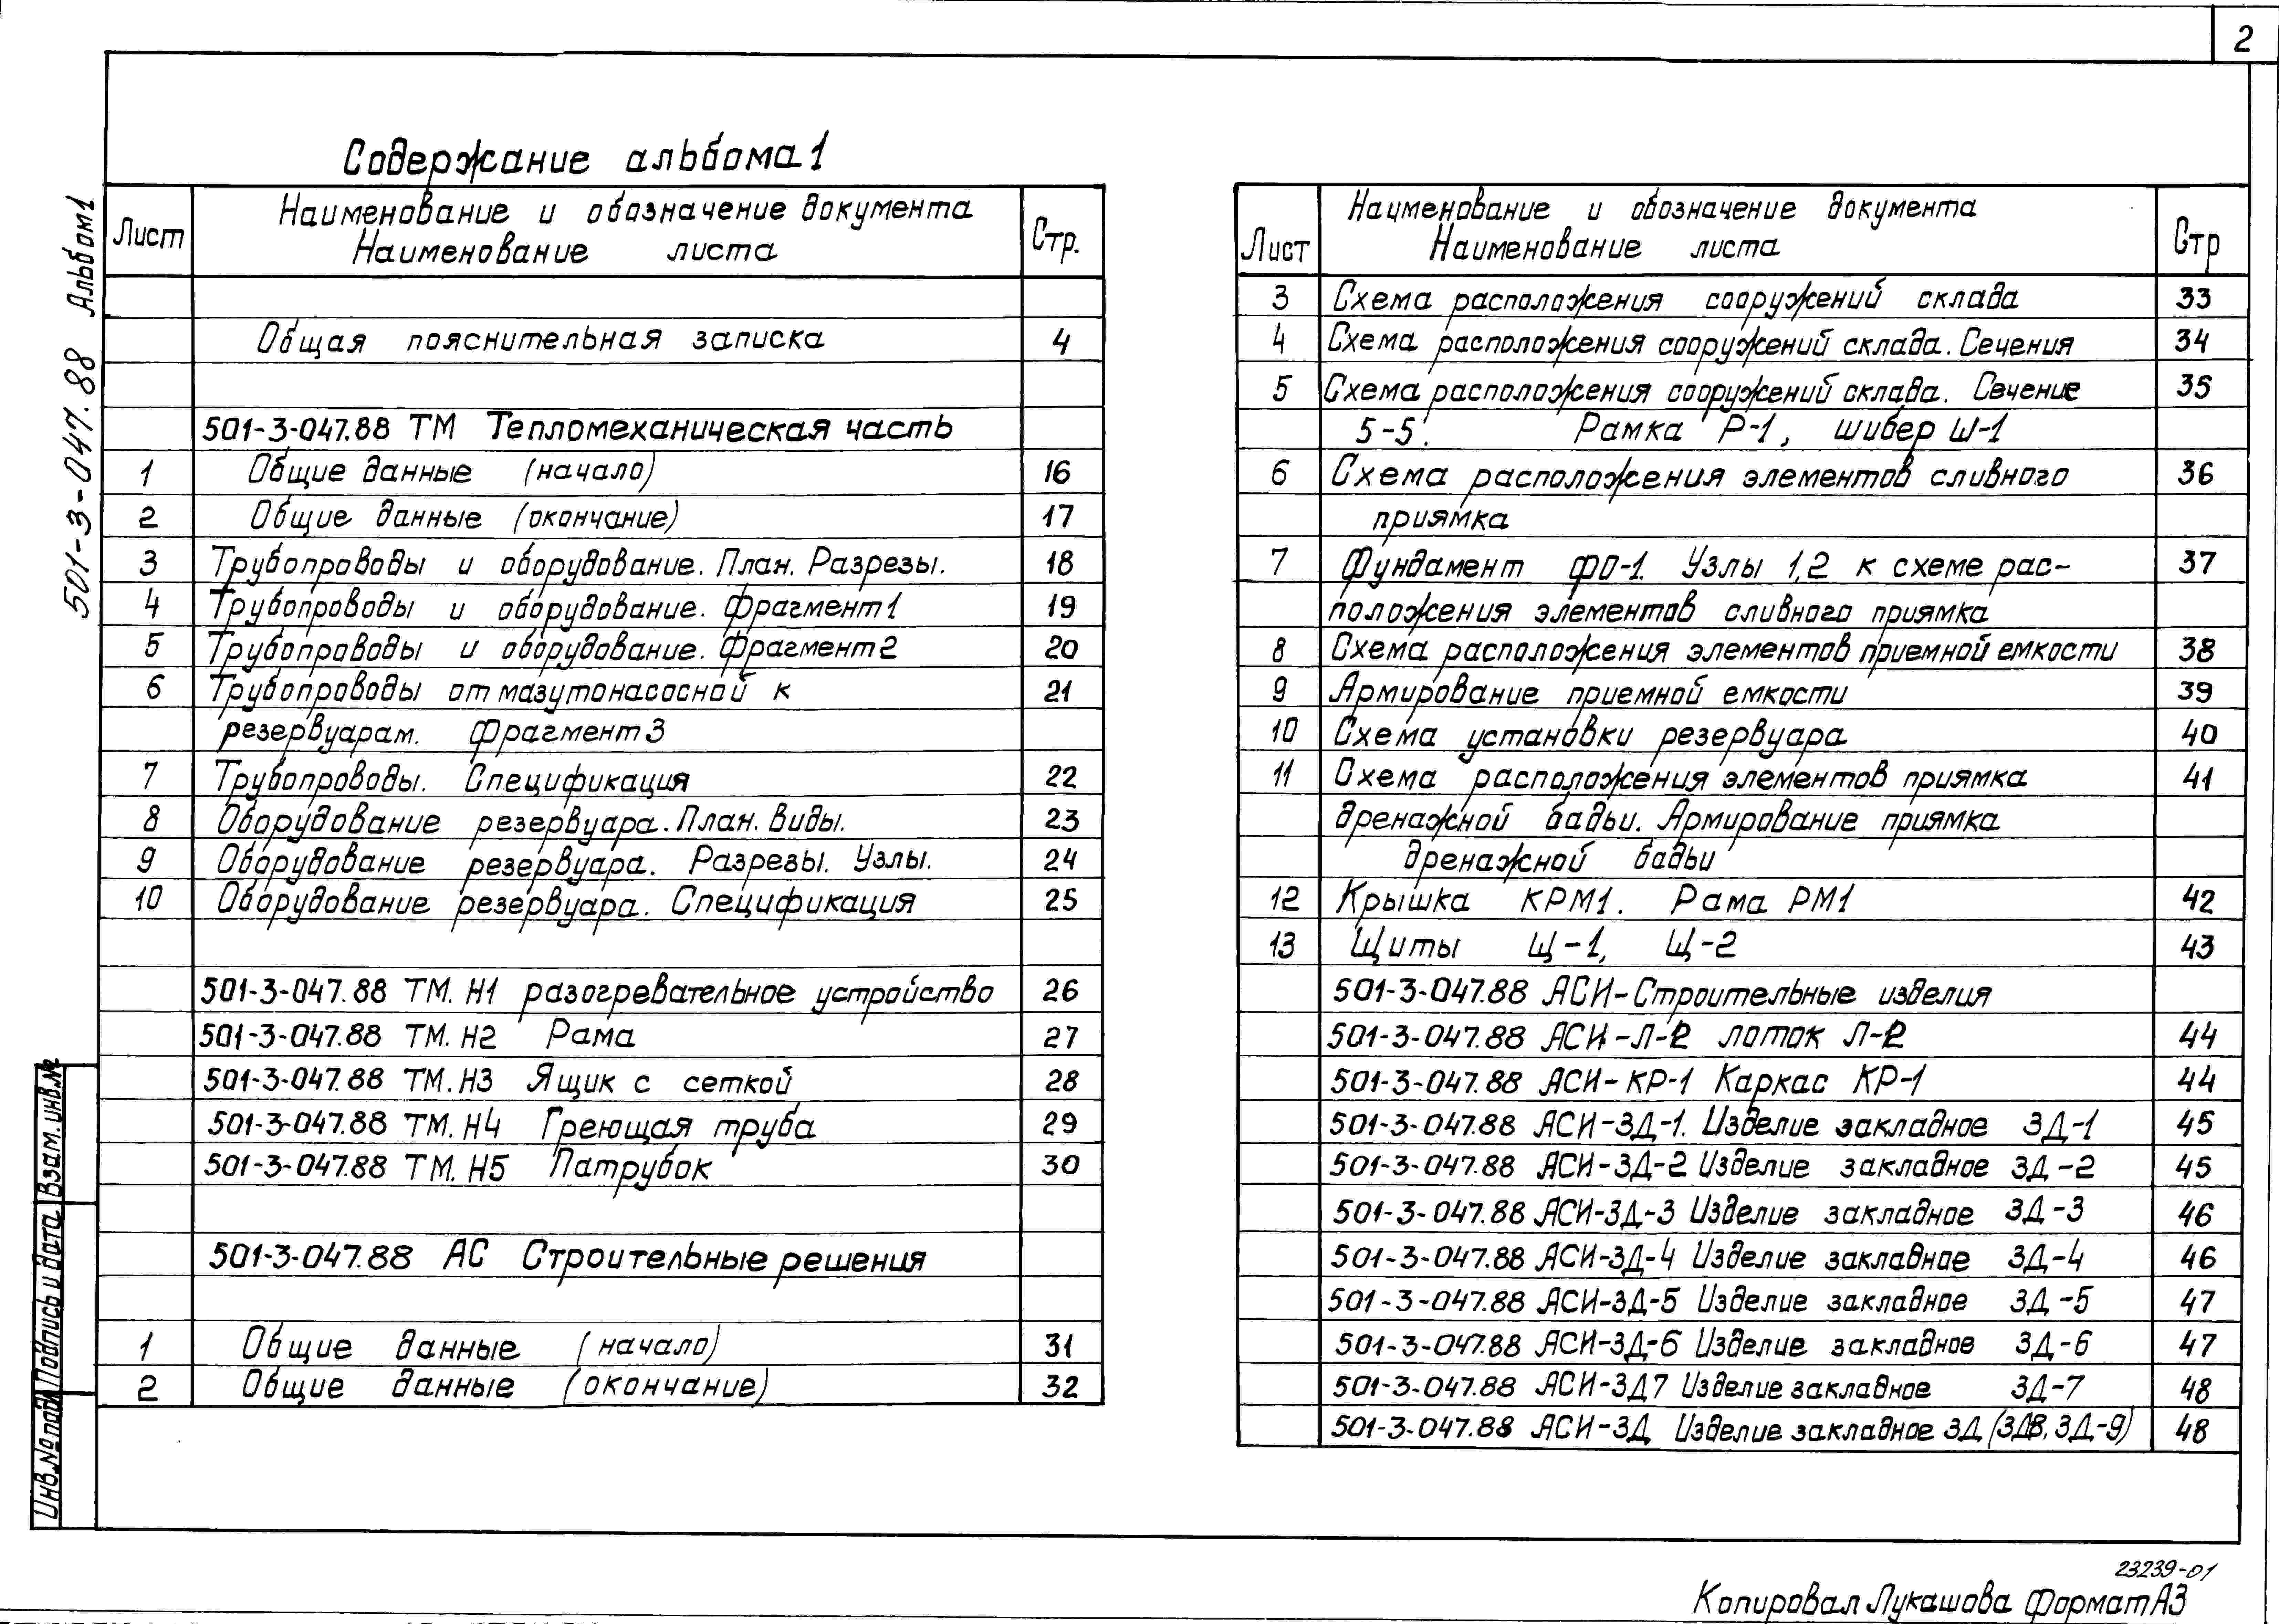 2
Содержание альбома 1
501-3-047.88 Альбом 1
Лист Наименование и обозначение документа Стр.
Наименование листа
Общая пояснительная записка 4
501-3-047.88 ТМ Тепломеханическая часть
1 Общие данные (начало) 16
2 Общие данные (окончание) 17
3 Трубопроводы и оборудование. План. Разрезы. 18
4 Трубопроводы и оборудование. Фрагмент 1 19
5 Трубопроводы и оборудование. Фрагмент 2 20
6 Трубопроводы от мазутонасосной к 21
резервуарам. Фрагмент 3
7 Трубопроводы. Спецификация 22
8 Оборудование резервуара. План. Виды. 23
9 Оборудование резервуара. Разрезы. Узлы. 24
10 Оборудование резервуара. Спецификация 25
501-3-047.88 ТМ. Н1 разогревательное устройство 26
501-3-047.88 ТМ. Н2 Рама 27
501-3-047.88 ТМ. Н3 Ящик с сеткой 28
501-3-047.88 ТМ. Н4 Греющая труба 29
501-3-047.88 ТМ. Н5 Патрубок 30
501-3-047.88 АС Строительные решения
1 Общие данные (начало) 31
2 Общие данные (окончание) 32
Лист Наименование и обозначение документа Стр
Наименование листа
3 Схема расположения сооружений склада 33
4 Схема расположения сооружений склада. Сечения 34
5 Схема расположения сооружений склада. Сечение 35
5-5. Рамка Р-1, шибер Ш-1
6 Схема расположения элементов сливного 36
приямка
7 Фундамент ФО-1. Узлы 1,2 к схеме рас- 37
положения элементов сливного приямка
8 Схема расположения элементов приемной емкости 38
9 Армирование приемной емкости 39
10 Схема установки резервуара 40
11 Схема расположения элементов приямка 41
дренажной бадьи. Армирование приямка
дренажной бадьи
12 Крышка КРМ1. Рама РМ1 42
13 Щиты Щ-1, Щ-2 43
501-3-047.88 АСИ-Строительные изделия
501-3-047.88 АСИ-Л-2 лоток Л-2 44
501-3-047.88 АСИ-КР-1 Каркас КР-1 44
501-3-047.88 АСИ-ЗД-1. Изделие закладное ЗД-1 45
501-3-047.88 АСИ-ЗД-2 Изделие закладное ЗД-2 45
501-3-047.88 АСИ-ЗД-3 Изделие закладное ЗД-3 46
501-3-047.88 АСИ-ЗД-4 Изделие закладное ЗД-4 46
501-3-047.88 АСИ-ЗД-5 Изделие закладное ЗД-5 47
501-3-047.88 АСИ-ЗД-6 Изделие закладное ЗД-6 47
501-3-047.88 АСИ-ЗД7 Изделие закладное ЗД-7 48
501-3-047.88 АСИ-ЗД Изделие закладное ЗД (ЗД8, ЗД-9) 48
Инв.№ подл. Подпись и дата Взам. инв.№
23239-01
Копировал Лукашова Формат А3